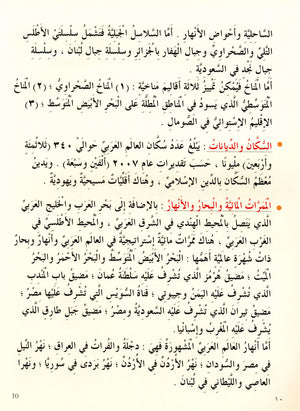 السَّاحِليَّة وأحْواض الأَنْهار . أمَّا السَّلاسِلُ الجَبَلِيَّةُ فَتَشْمَلُ سلْسلَتَيْ الأَطْلَسِ
التَّلِّيِّ والصَّحْراوِيِّ وجبال الهقار بِالجَزائِرِ وسلْسلَة جِبال لُبْنَانَ ، وسلْسِلَة
جِبال نَجْد في السعوديَّة .
أمَّا الْمناخُ فَيُمْكنُ تَمْييزُ ثَلاثَة أقاليمَ مناخيَّة : (١) الْمناخُ الصَّحْراوِيُّ ؛ (٢) الْمناخُ
المُتَوسِّطيُّ الَّذي يَسودُ في الْمَناطق المُطلَّة عَلى البَحْرِ الأَبْيَضِ المُتَوَسِّط ؛ (٣)
الإقليمُ الإسْتوائيُّ في الصُّومال .
• السُّكَّانُ والدِّياناتُ : يَبْلُغُ عَدَدُ سُكَّان العالَمِ العَرَبِيِّ حوالَي ٣٤٠ (ثَلاثمئَة
وأرْبَعين) مِلْيونًا ، حَسَبَ تَقْديرات عام ٢٠٠٧ (أَلْفَيْنِ وسَبْعَة) . ويَدينُ
مُعْظَمُ السُّكَّان بِالدِّين الإسْلاميِّ ، وهُناكَ أَقَلِّيَّاتٌ مَسيحيَّةٌ ويَهوديَّةٌ .
• الْمَمَرَّاتُ الْمائيَّةُ والْبحارُ والأَنْهارُ : بالإضافة إلى بَحْر العَرَب والخَليج العَرَبيِّ
الَّذي يَتَّصلُ بِالْمُحيط الهنْديِّ في الشَّرْق العَرَبيِّ ، والْمُحيط الأَطْلَسيِّ في
الغَرْب العَرَبيِّ ، هُناكَ مَمَرَّاتٌ مائيَّةٌ إسْتراتيجيَّةٌ في العالَم العَرَبيِّ وأَنْهارٌ وبحارٌ
ذاتُ شُهْرَة عالَميَّة أَهَمُّها : الْبَحْرُ الأَبْيَضُ الْمُتَوَسِّطُ والْبَحْرُ الأَحْمَرُ والْبَحْرُ
الْمَيِّتُ ؛ مَضيقُ هُرْمُزَ الَّذي تُشْرفُ عَلَيْه سَلْطَنَةُ عُمانَ ؛ مَضيقُ باب الْمَنْدَب
الَّذي تُشْرفُ عَلَيْه الْيَمَنُ وجيبوتي ؛ قَناةُ السُّوَيْس الَّتي تُشْرفُ عَلَيْها مصْرُ ؛
مَضيقُ تيران الَّذي تُشْرفُ عَلَيْه السُّعوديَّةُ ومصْرُ ؛ مَضيقُ جَبَل طارق الَّذي
يُشْرفُ عَلَيْه الْمَغْربُ وإسْبانيا .
أمَّا أَنْهارُ العالَم العَرَبيِّ الْمَشْهورَةُ فَهيَ : دجْلَةُ والفُراتُ في العراق ؛ نَهْرُ النِّيل
في مصْرَ والسُّودان ؛ نَهْرُ الأُرْدُنِّ في الأُرْدُنِّ ؛ نَهْرُ بَرَدى في سُوريَّا ؛ ونَهْرا
العاصي واللِّيطاني في لُبْنانَ .
10 ١٠